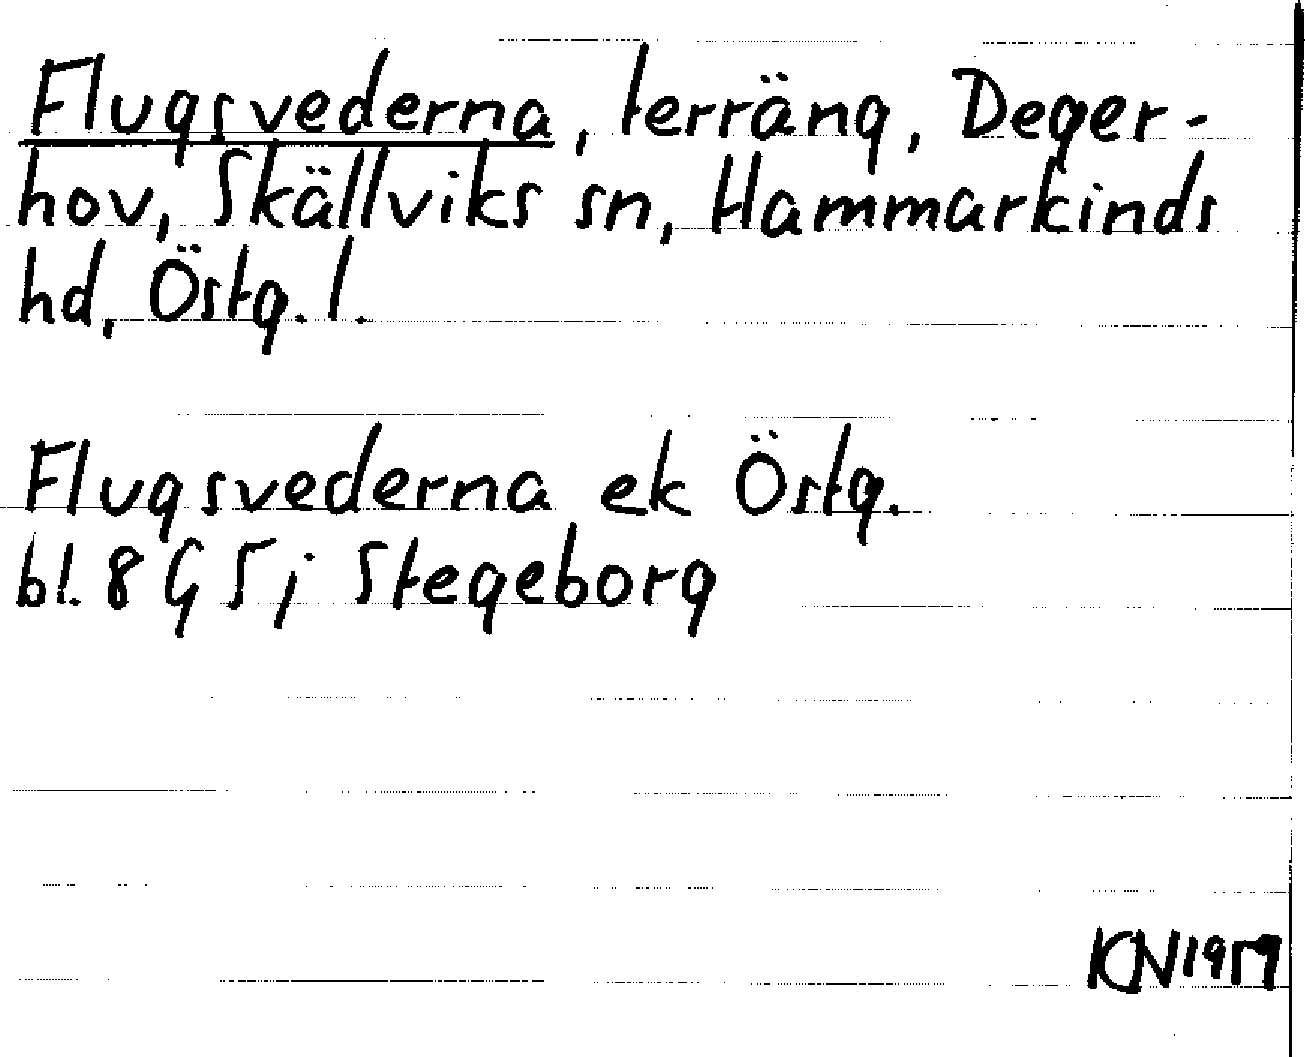 Flugsvederna, terräng, Deger-
hov, Skällviks sn, Hammarkinds
hd, Östg. l.
Flugsvederna ek Östg.
bl. 8 G 5 j Stegeborg
KN 1959